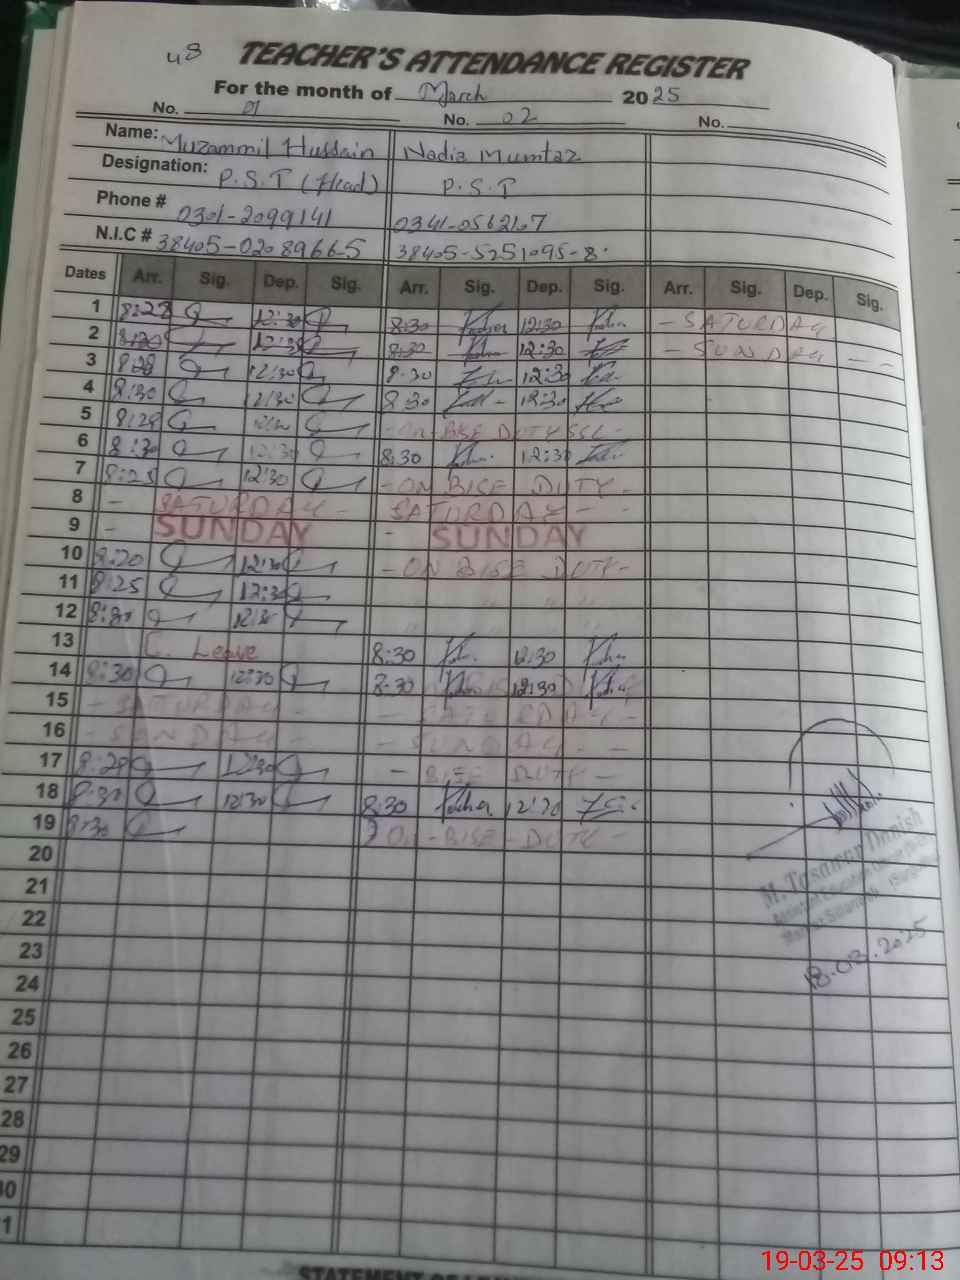 48
TEACHER'S ATTENDANCE REGISTER
For the month of March 2025
No. 01 No. 02 No.
Name: Muzammil Hussain Nadia Mumtaz
Designation: P.S.T (Head) P.S.T
Phone # 0301-2099141 0341-0562107
N.I.C # 38405-0208966-5 38405-5251095-8
Dates Arr. Sig. Dep. Sig. Arr. Sig. Dep. Sig. Arr. Sig. Dep. Sig.
1 8:28 12:30 8:30 12:30 - SATURDAY
2 8:30 12:30 8:30 12:30 - SUNDAY - -
3 8:28 12:30 8:30 12:30
4 8:30 12:30 8:30 12:30
5 8:28 - On BISE DUTY
6 8:30 12:30 8:30 12:30
7 8:25 12:30 - ON BISE DUTY -
8 - SATURDAY - SATURDAY - -
9 - SUNDAY - SUNDAY
10 8:20 12:30 - ON BISE DUTY -
11 8:25 12:30
12 8:30 12:30
13 C. Leave 8:30 12:30
14 8:30 12:30 8:30 12:30
15 - SATURDAY - - SATURDAY -
16 - SUNDAY - - SUNDAY - -
17 8:28 12:30 - BISE DUTY -
18 8:30 12:30 8:30 12:30
19 8:30 On - BISE - DUTY -
20
21
22
23
24
25
26
27
28
29
30
1
M. Tasawar Danish
18.03.2025
19-03-25 09:13